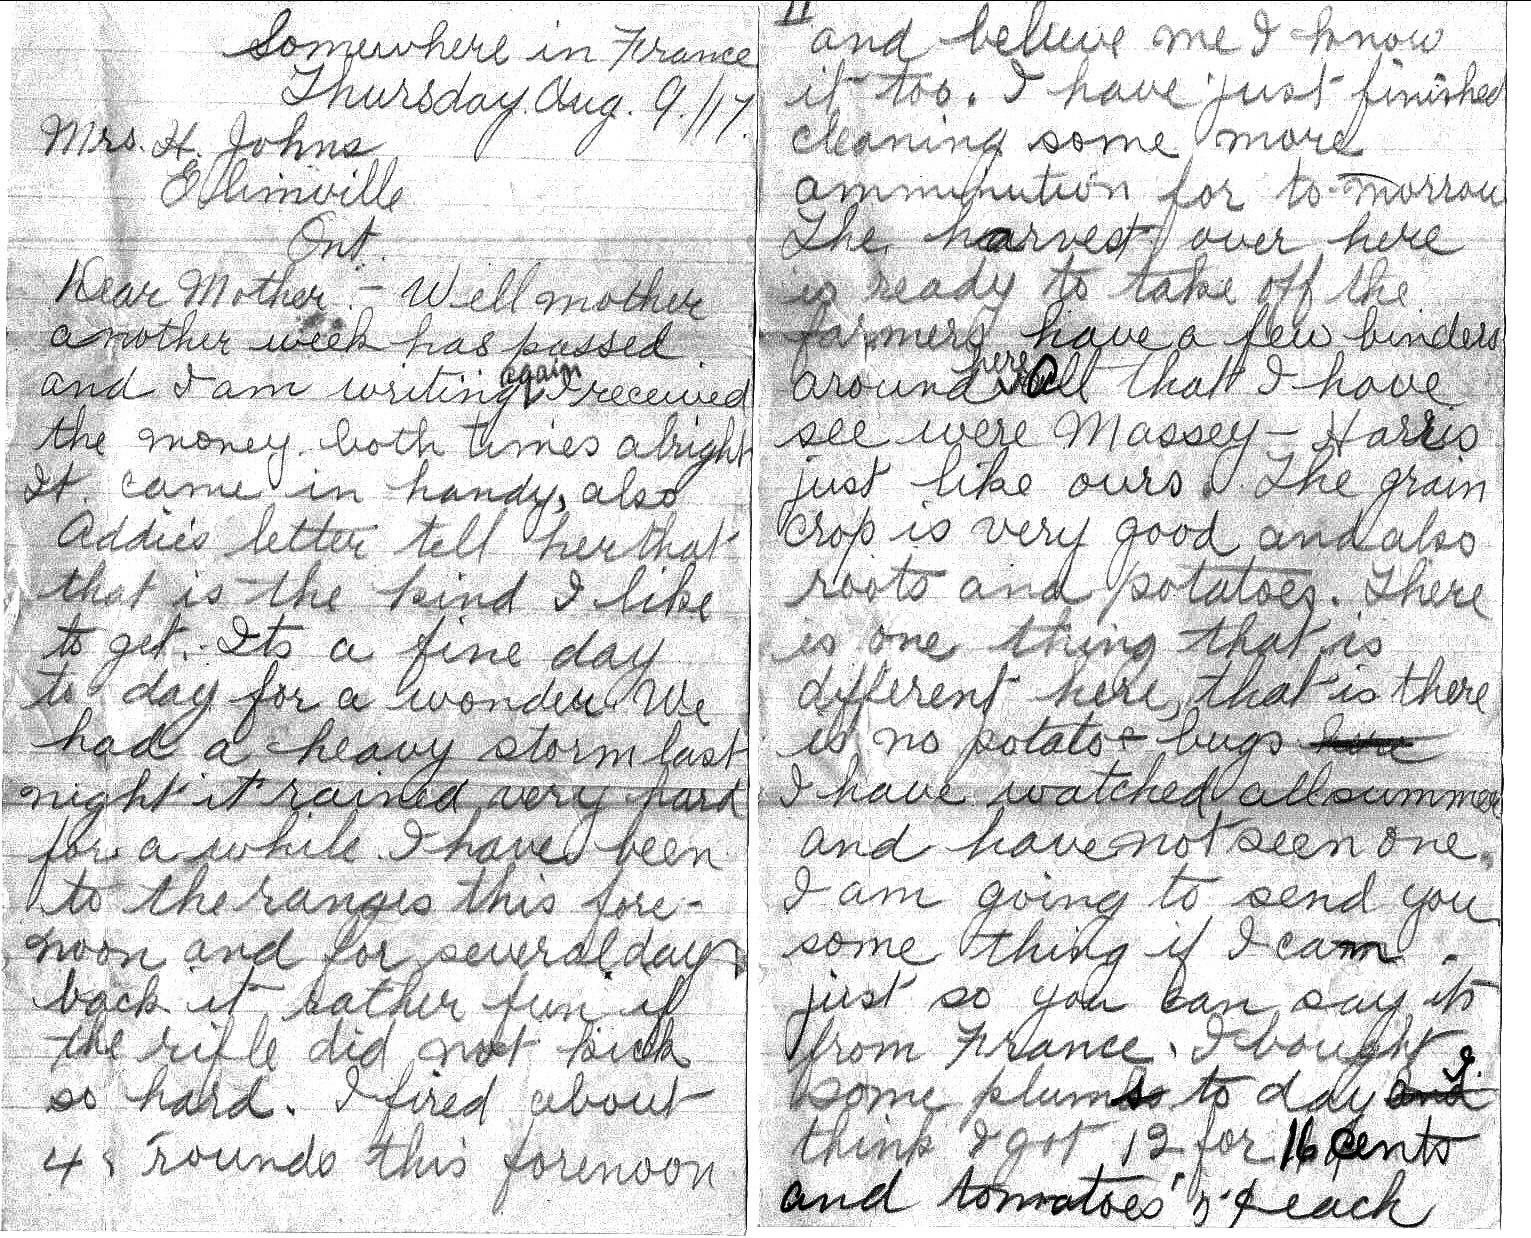 Somewhere in France
Thursday Aug. 9/17.
Mrs. H. Johns
Elimville
Ont.
Dear Mother:- Well mother
another week has passed
and I am writing again I received
the money both times alright
It came in handy, also
Addie's letter tell her that
that is the kind I like
to get. Its a fine day
to day for a wonder. We
had a heavy storm last
night it rained very hard
for a while. I have been
to the ranges this fore-
noon and for several days
back it rather fun if
the rifle did not kick
so hard. I fired about
rounds this forenoon
II
and believe me I know
it too. I have just finished
cleaning some more
ammunution for to-morrow
The harvest over here
is ready to take off the
farmers have a few binders
around here all that I have
see were Massey-Harris
just like ours. The grain
crop is very good and also
roots and potatoes. There
is one thing that is
different here, that is there
is no potato-bugs
I have watched all summer
and have not seen one.
I am going to send you
some thing if I can
just so you can say its
from France. I bought
some plums to day and I
think I got 12 for 16 cents
and tomatoes ¢ each